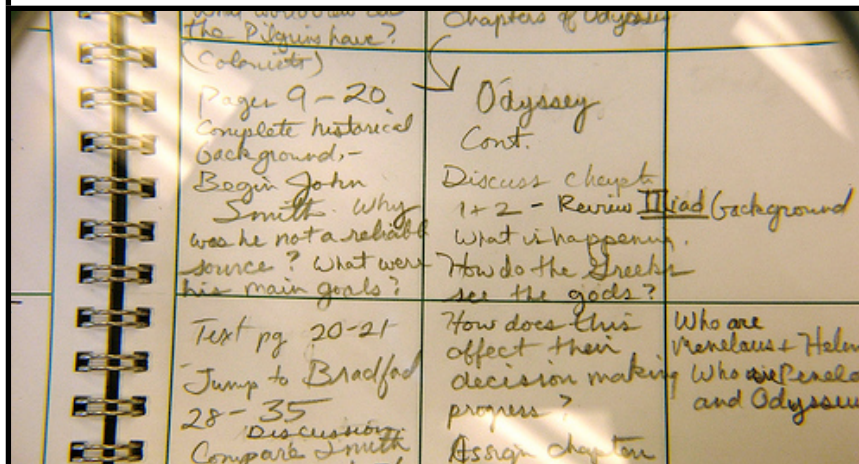 the Pilgrims have?
(Colonists)
Pages 9-20
Complete historical
background,-
Begin John
Smith. Why
was he not a reliabl
source? What were
his main goals?
Text pg 20-21
Jump to Bradfod
28-35
Discussion
Compare Smith
Chapters of Odyssey
Odyssey
Cont.
Discuss chapt.
1+2 - Review Iliad background
What is happenin.
How do the Greeks
see the gods?
How does this
affect their
decision making
progress?
Assign
Who are
Menelaus + Helen
Who are Penelo
and Odysseu